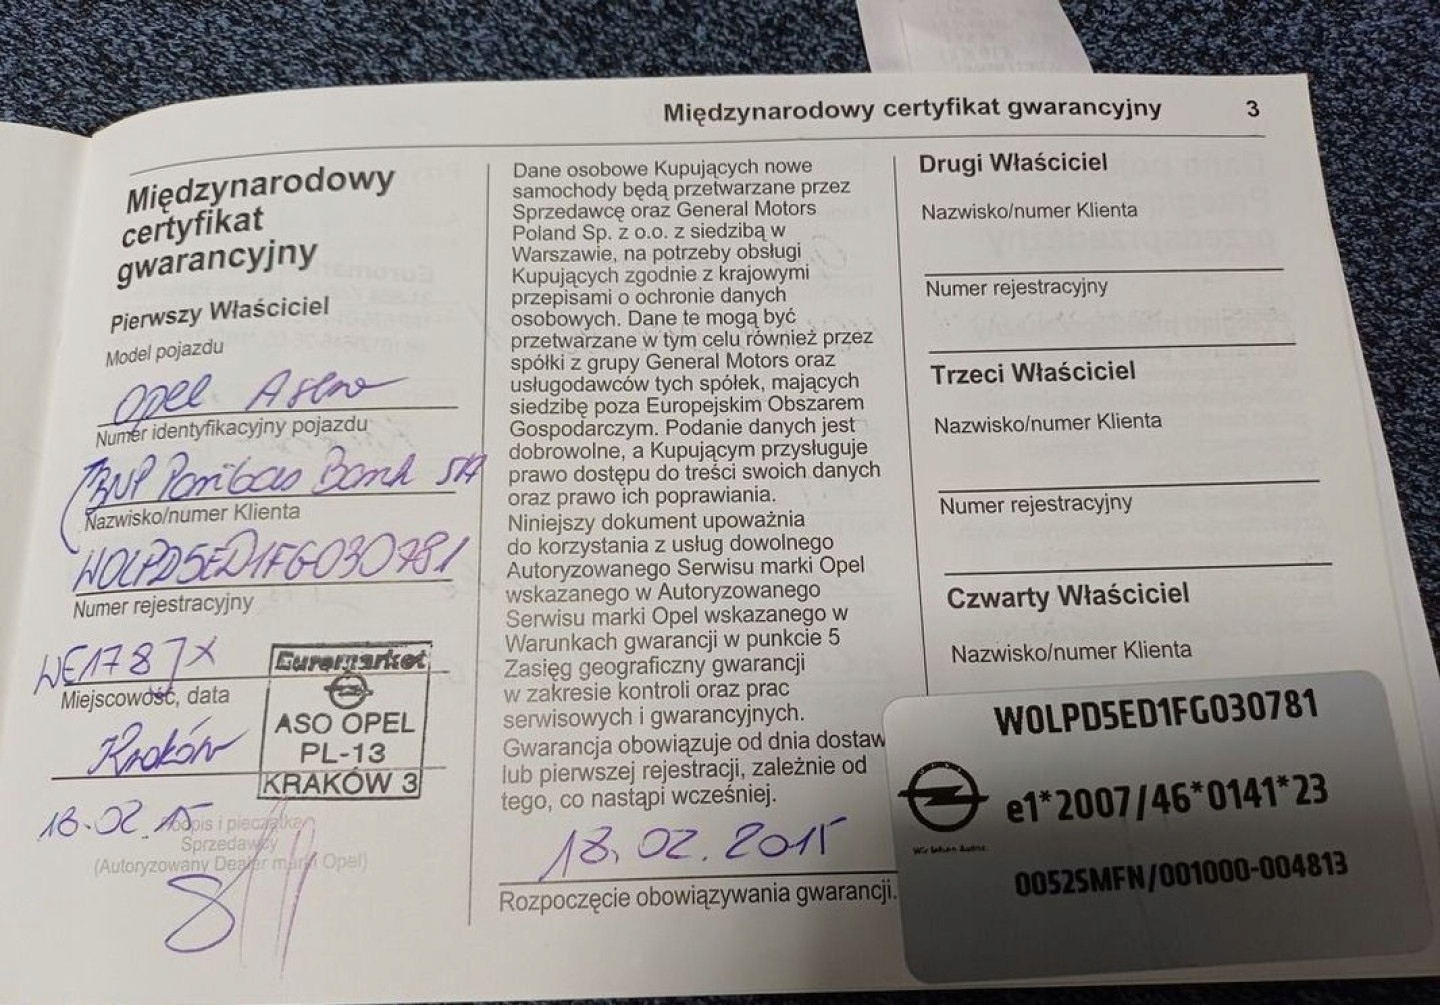 Międzynarodowy certyfikat gwarancyjny 3
Międzynarodowy
certyfikat
gwarancyjny
Pierwszy Właściciel
Model pojazdu
Opel Astra
Numer identyfikacyjny pojazdu
BNP Paribas Bank SA
Nazwisko/numer Klienta
W0LPD5ED1FG030781
Numer rejestracyjny
WE1787X
Miejscowość, data
Kraków
18.02.15
Euromarket
ASO OPEL
PL-13
KRAKÓW 3
Podpis i pieczątka
Sprzedawcy
(Autoryzowany Dealer marki Opel)
Dane osobowe Kupujących nowe
samochody będą przetwarzane przez
Sprzedawcę oraz General Motors
Poland Sp. z o.o. z siedzibą w
Warszawie, na potrzeby obsługi
Kupujących zgodnie z krajowymi
przepisami o ochronie danych
osobowych. Dane te mogą być
przetwarzane w tym celu również przez
spółki z grupy General Motors oraz
usługodawców tych spółek, mających
siedzibę poza Europejskim Obszarem
Gospodarczym. Podanie danych jest
dobrowolne, a Kupującym przysługuje
prawo dostępu do treści swoich danych
oraz prawo ich poprawiania.
Niniejszy dokument upoważnia
do korzystania z usług dowolnego
Autoryzowanego Serwisu marki Opel
wskazanego w Autoryzowanego
Serwisu marki Opel wskazanego w
Warunkach gwarancji w punkcie 5
Zasięg geograficzny gwarancji
w zakresie kontroli oraz prac
serwisowych i gwarancyjnych.
Gwarancja obowiązuje od dnia dostaw
lub pierwszej rejestracji, zależnie od
tego, co nastąpi wcześniej.
18.02.2015
Rozpoczęcie obowiązywania gwarancji.
Drugi Właściciel
Nazwisko/numer Klienta
Numer rejestracyjny
Trzeci Właściciel
Nazwisko/numer Klienta
Numer rejestracyjny
Czwarty Właściciel
Nazwisko/numer Klienta
W0LPD5ED1FG030781
e1*2007/46*0141*23
Wir leben Autos.
0052SMFN/001000-004813